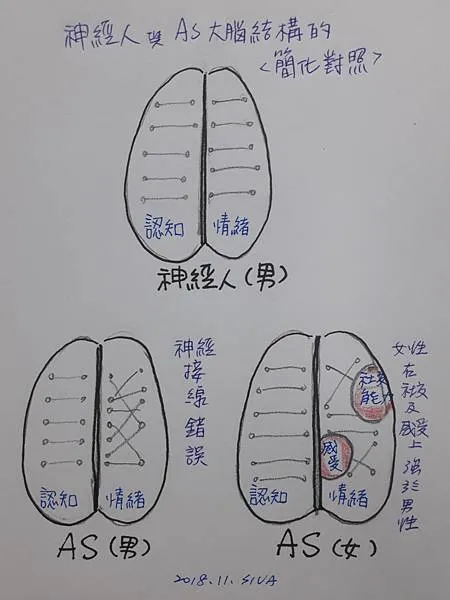 神經人與AS大腦結構的
<簡化對照>
認知
情緒
神經人(男)
認知
情緒
AS(男)
神經接線錯誤
認知
情緒
社交能力
感受
AS(女)
女性在社交及感受上強於男性
2018.11. SIVA